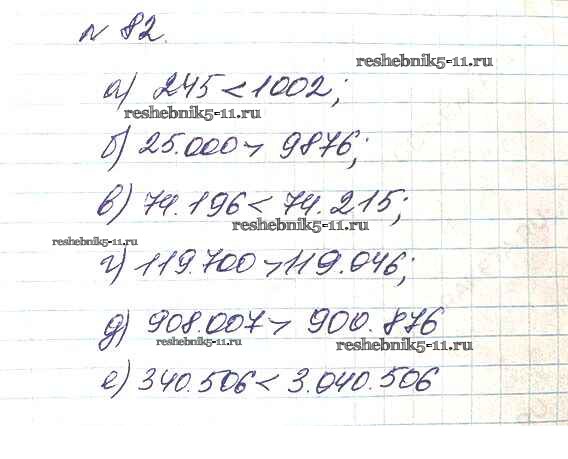 № 82.
reshebnik5-11.ru
а) 245 < 1002;
reshebnik5-11.ru
б) 25.000 > 9876;
в) 74.196 < 74.215;
reshebnik5-11.ru
reshebnik5-11.ru
г) 119.700 > 119.046;
д) 908.007 > 900.876
reshebnik5-11.ru
reshebnik5-11.ru
е) 340.506 < 3.040.506